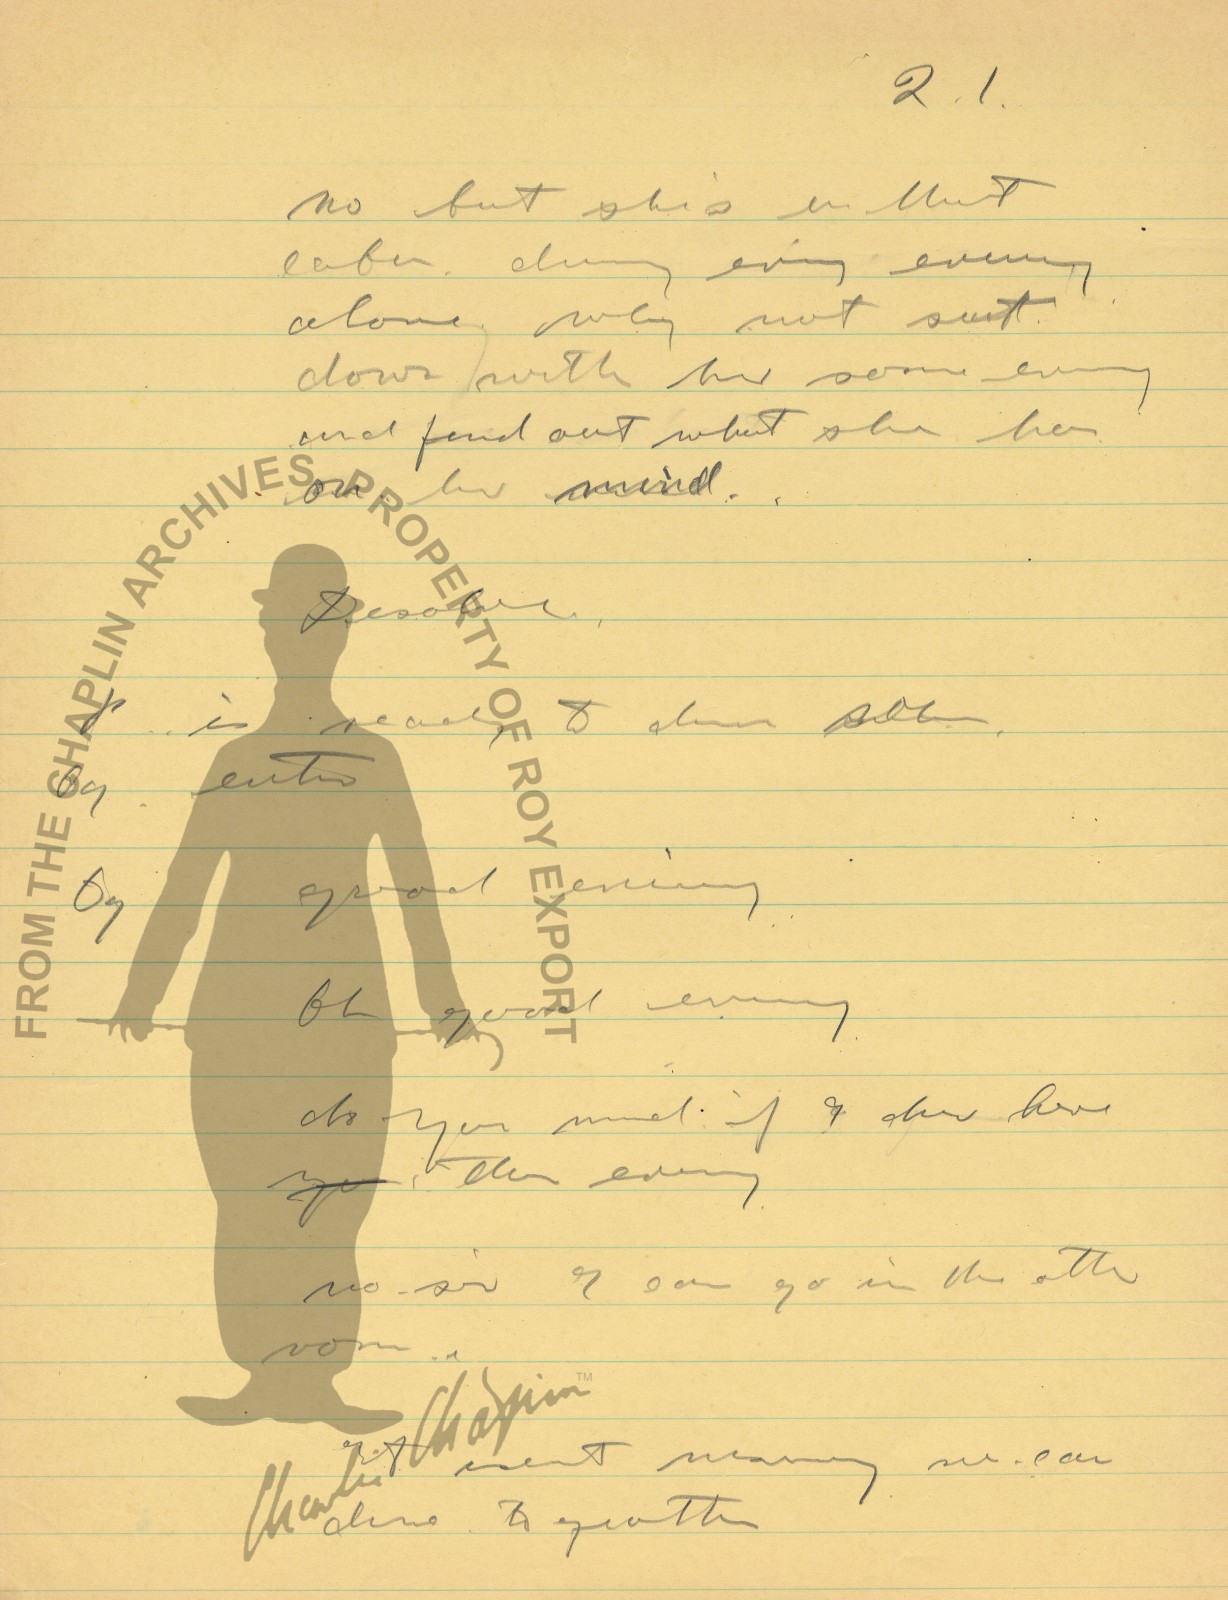 2.1.
no but she's in that
cabin. dining every evening
alone, why not sit
down with her some evening
and find out what she has
on her mind.
Desolve.
is ready to dine
By enters
By good evening
Oh good evening
do you mind if I dine here
this evening
no sir I can go in the other
room..
It isent necessary we can
dine together
FROM THE CHAPLIN ARCHIVES. PROPERTY OF ROY EXPORT
Charlie Chaplin™